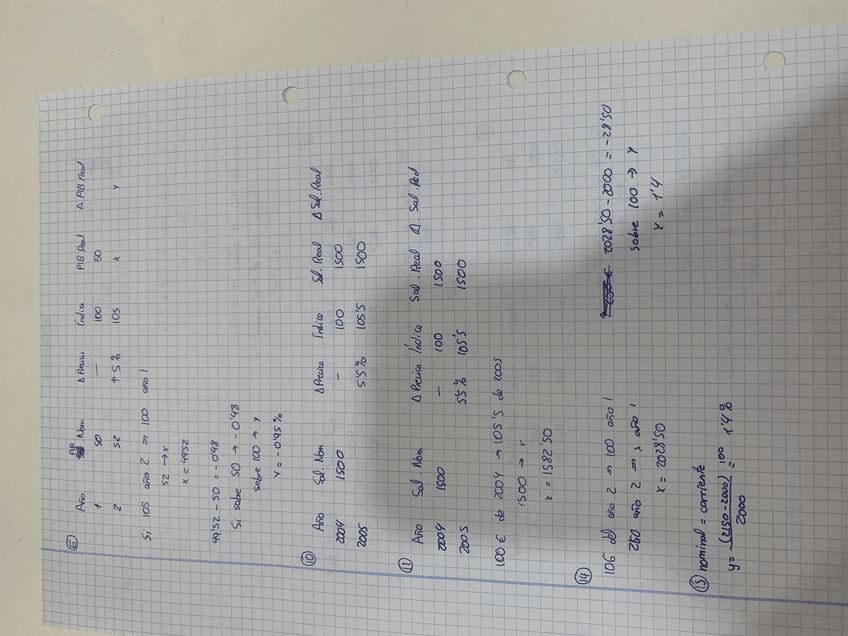 ⑥ Año PIB Nom Δ Precios Índice PIB Real Δ PIB Real
1 50 — 100 50
2 52 ↑ 5% 105 x y
Si 105 año 2 ⇒ 100 año 1
52 → x
x = 49'52
49'52 - 50 = -0'48
Si sobre 50 → -0'48
sobre 100 → y
y = -0'95 %
⑩ Año Sal. Nom Δ Precios Índice Sal. Real Δ Sal. Real
2004 1500 — 100 1500
2005 5'5% 105'5 1500
⑪ Año Sal. Nom Δ Precios Índice Sal. Real Δ. Sal. Real
2004 1500 — 100 1500
2005 5'5% 105'5 1500
100 € de 2004 → 105'5 de 2005
1500 → x
x = 1582'50
⑭ 106 del año 2 ⇒ 100 año 1
2150 año 2 ⇒ x año 1
x = 2028'50
2028'50 - 2000 = -28'50
sobre 100 → y
y = 1'4
⑬ nominal = corriente
y = (2150-2000) 100 / 2000 = 1'4%